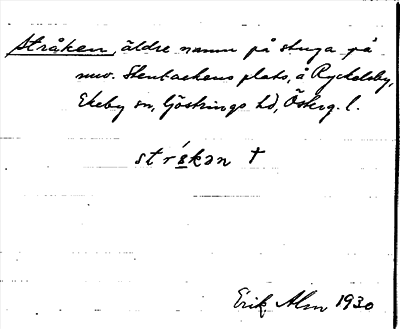 Stråken, äldre namn på stuga på
nuv. Stenbackens plats, å Ryckelsby,
Ekeby sn, Göstrings hd, Österg. l.
stråkən †
Erik Alm 1930